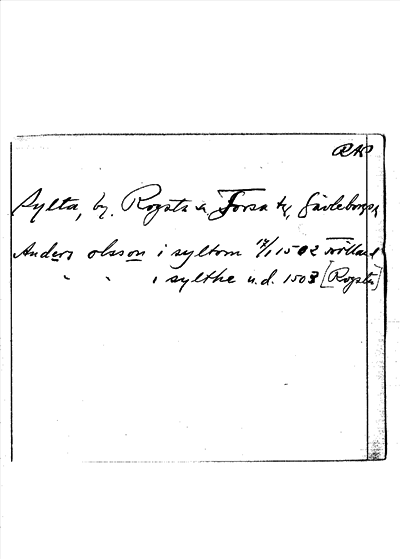 RAP
Sylta, by. Rogsta s. Forsa tg, Gävleborgs,
Anders olsson i syltom 17/1 1502
" " i sylthe u.d. 1503 [Rogsta]